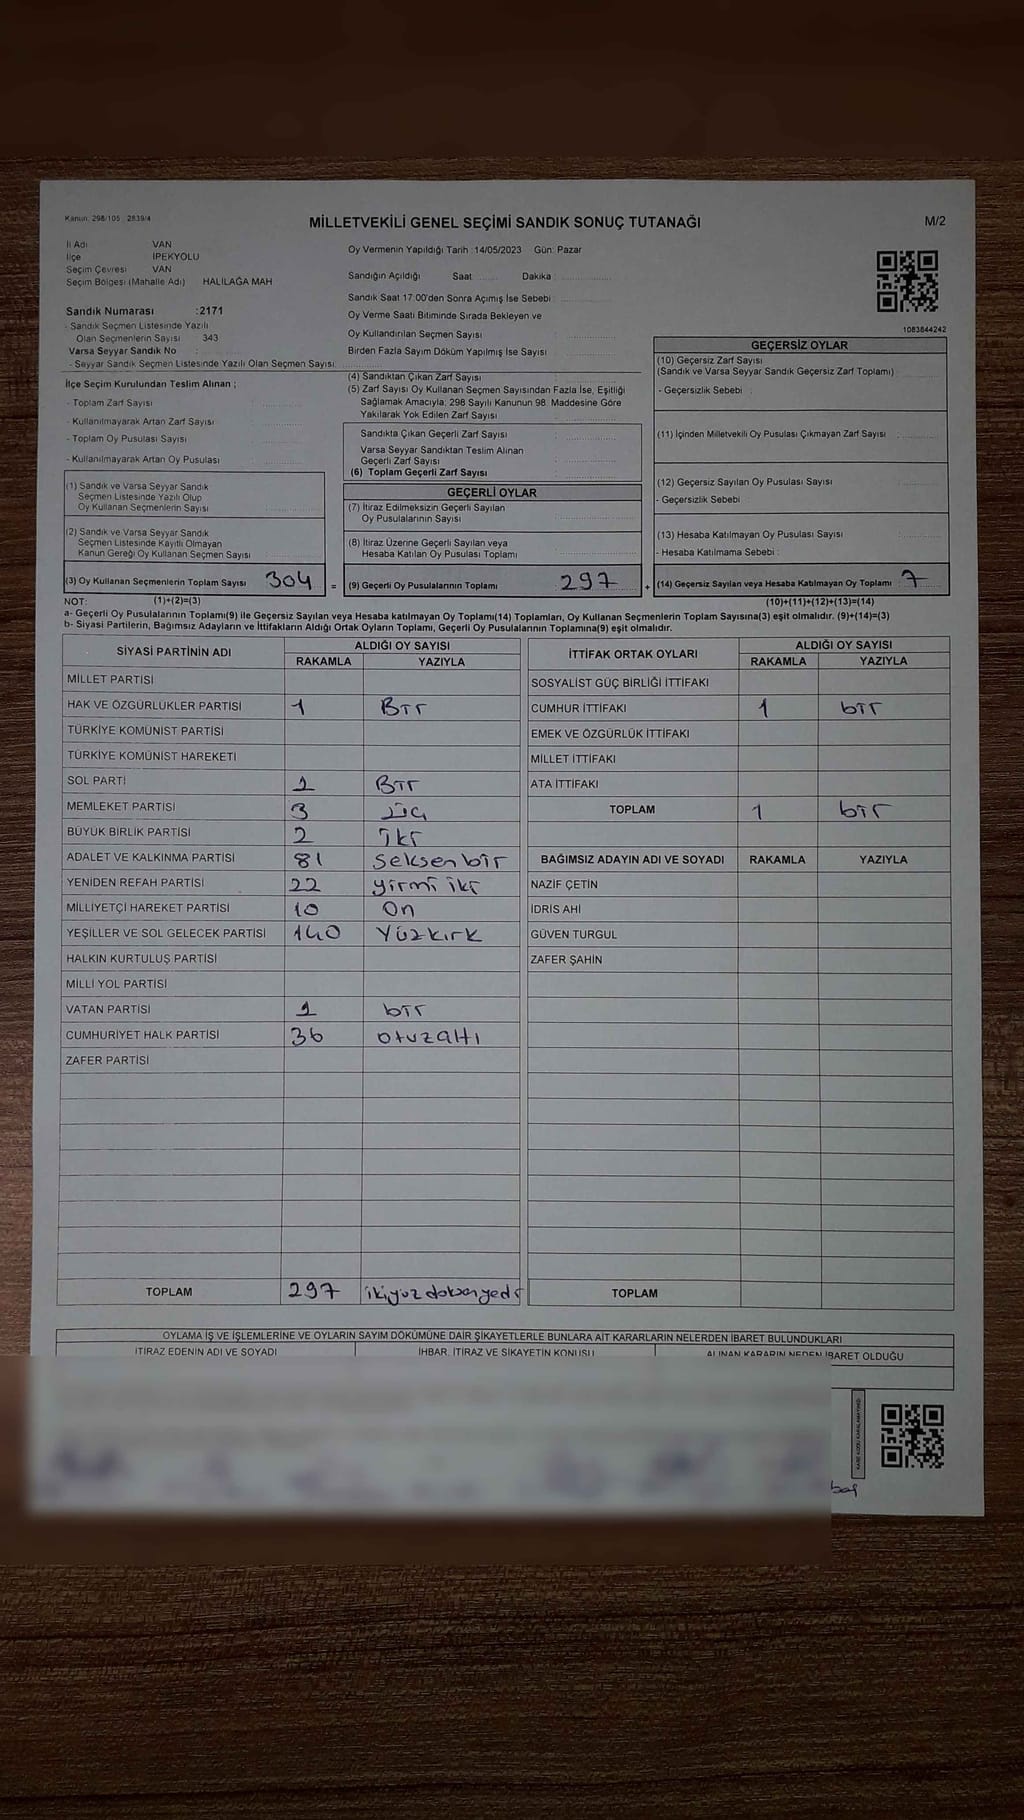 Kanun: 298/105 , 2839/4
MİLLETVEKİLİ GENEL SEÇİMİ SANDIK SONUÇ TUTANAĞI
M/2
İl Adı VAN
İlçe İPEKYOLU
Seçim Çevresi VAN
Seçim Bölgesi (Mahalle Adı) HALİLAĞA MAH
Oy Vermenin Yapıldığı Tarih :14/05/2023 Gün: Pazar
Sandığın Açıldığı Saat Dakika
Sandık Saat 17:00'den Sonra Açımış İse Sebebi
Oy Verme Saati Bitiminde Sırada Bekleyen ve
Oy Kullandırılan Seçmen Sayısı
Birden Fazla Sayım Döküm Yapılmış İse Sayısı
1083844242
Sandık Numarası :2171
- Sandık Seçmen Listesinde Yazılı
Olan Seçmenlerin Sayısı 343
Varsa Seyyar Sandık No
- Seyyar Sandık Seçmen Listesinde Yazılı Olan Seçmen Sayısı
İlçe Seçim Kurulundan Teslim Alınan ;
- Toplam Zarf Sayısı
- Kullanılmayarak Artan Zarf Sayısı
- Toplam Oy Pusulası Sayısı
- Kullanılmayarak Artan Oy Pusulası
(1) Sandık ve Varsa Seyyar Sandık
Seçmen Listesinde Yazılı Olup
Oy Kullanan Seçmenlerin Sayısı
(2) Sandık ve Varsa Seyyar Sandık
Seçmen Listesinde Kayıtlı Olmayan
Kanun Gereği Oy Kullanan Seçmen Sayısı
(3) Oy Kullanan Seçmenlerin Toplam Sayısı 304 =
(4) Sandıktan Çıkan Zarf Sayısı
(5) Zarf Sayısı Oy Kullanan Seçmen Sayısından Fazla İse, Eşitliği
Sağlamak Amacıyla; 298 Sayılı Kanunun 98. Maddesine Göre
Yakılarak Yok Edilen Zarf Sayısı
Sandıkta Çıkan Geçerli Zarf Sayısı
Varsa Seyyar Sandıktan Teslim Alınan
Geçerli Zarf Sayısı
(6) Toplam Geçerli Zarf Sayısı
GEÇERLİ OYLAR
(7) İtiraz Edilmeksizin Geçerli Sayılan
Oy Pusulalarının Sayısı
(8) İtiraz Üzerine Geçerli Sayılan veya
Hesaba Katılan Oy Pusulası Toplamı
(9) Geçerli Oy Pusulalarının Toplamı 297 +
GEÇERSİZ OYLAR
(10) Geçersiz Zarf Sayısı
(Sandık ve Varsa Seyyar Sandık Geçersiz Zarf Toplamı)
- Geçersizlik Sebebi :
(11) İçinden Milletvekili Oy Pusulası Çıkmayan Zarf Sayısı
(12) Geçersiz Sayılan Oy Pusulası Sayısı
- Geçersizlik Sebebi
(13) Hesaba Katılmayan Oy Pusulası Sayısı
- Hesaba Katılmama Sebebi :
(14) Geçersiz Sayılan veya Hesaba Katılmayan Oy Toplamı 7
NOT: (1)+(2)=(3) (10)+(11)+(12)+(13)=(14)
a- Geçerli Oy Pusulalarının Toplamı(9) ile Geçersiz Sayılan veya Hesaba katılmayan Oy Toplamı(14) Toplamları, Oy Kullanan Seçmenlerin Toplam Sayısına(3) eşit olmalıdır. (9)+(14)=(3)
b- Siyasi Partilerin, Bağımsız Adayların ve İttifakların Aldığı Ortak Oyların Toplamı, Geçerli Oy Pusulalarının Toplamına(9) eşit olmalıdır.
SİYASİ PARTİNİN ADI ALDIĞI OY SAYISI
RAKAMLA YAZIYLA
MİLLET PARTİSİ
HAK VE ÖZGÜRLÜKLER PARTİSİ 1 Bir
TÜRKİYE KOMÜNİST PARTİSİ
TÜRKİYE KOMÜNİST HAREKETİ
SOL PARTİ 1 Bir
MEMLEKET PARTİSİ 3 üç
BÜYÜK BİRLİK PARTİSİ 2 iki
ADALET VE KALKINMA PARTİSİ 81 Seksenbir
YENİDEN REFAH PARTİSİ 22 yirmi iki
MİLLİYETÇİ HAREKET PARTİSİ 10 On
YEŞİLLER VE SOL GELECEK PARTİSİ 140 Yüzkırk
HALKIN KURTULUŞ PARTİSİ
MİLLİ YOL PARTİSİ
VATAN PARTİSİ 1 bir
CUMHURİYET HALK PARTİSİ 36 otuzaltı
ZAFER PARTİSİ
TOPLAM 297 ikiyüzdoksanyedi
İTTİFAK ORTAK OYLARI ALDIĞI OY SAYISI
RAKAMLA YAZIYLA
SOSYALİST GÜÇ BİRLİĞİ İTTİFAKI
CUMHUR İTTİFAKI 1 bir
EMEK VE ÖZGÜRLÜK İTTİFAKI
MİLLET İTTİFAKI
ATA İTTİFAKI
TOPLAM 1 bir
BAĞIMSIZ ADAYIN ADI VE SOYADI RAKAMLA YAZIYLA
NAZİF ÇETİN
İDRİS AHİ
GÜVEN TURGUL
ZAFER ŞAHİN
TOPLAM
OYLAMA İŞ VE İŞLEMLERİNE VE OYLARIN SAYIM DÖKÜMÜNE DAİR ŞİKAYETLERLE BUNLARA AİT KARARLARIN NELERDEN İBARET BULUNDUKLARI
İTİRAZ EDENİN ADI VE SOYADI İHBAR, İTİRAZ VE ŞİKAYETİN KONUSU ALINAN KARARIN NEDEN İBARET OLDUĞU